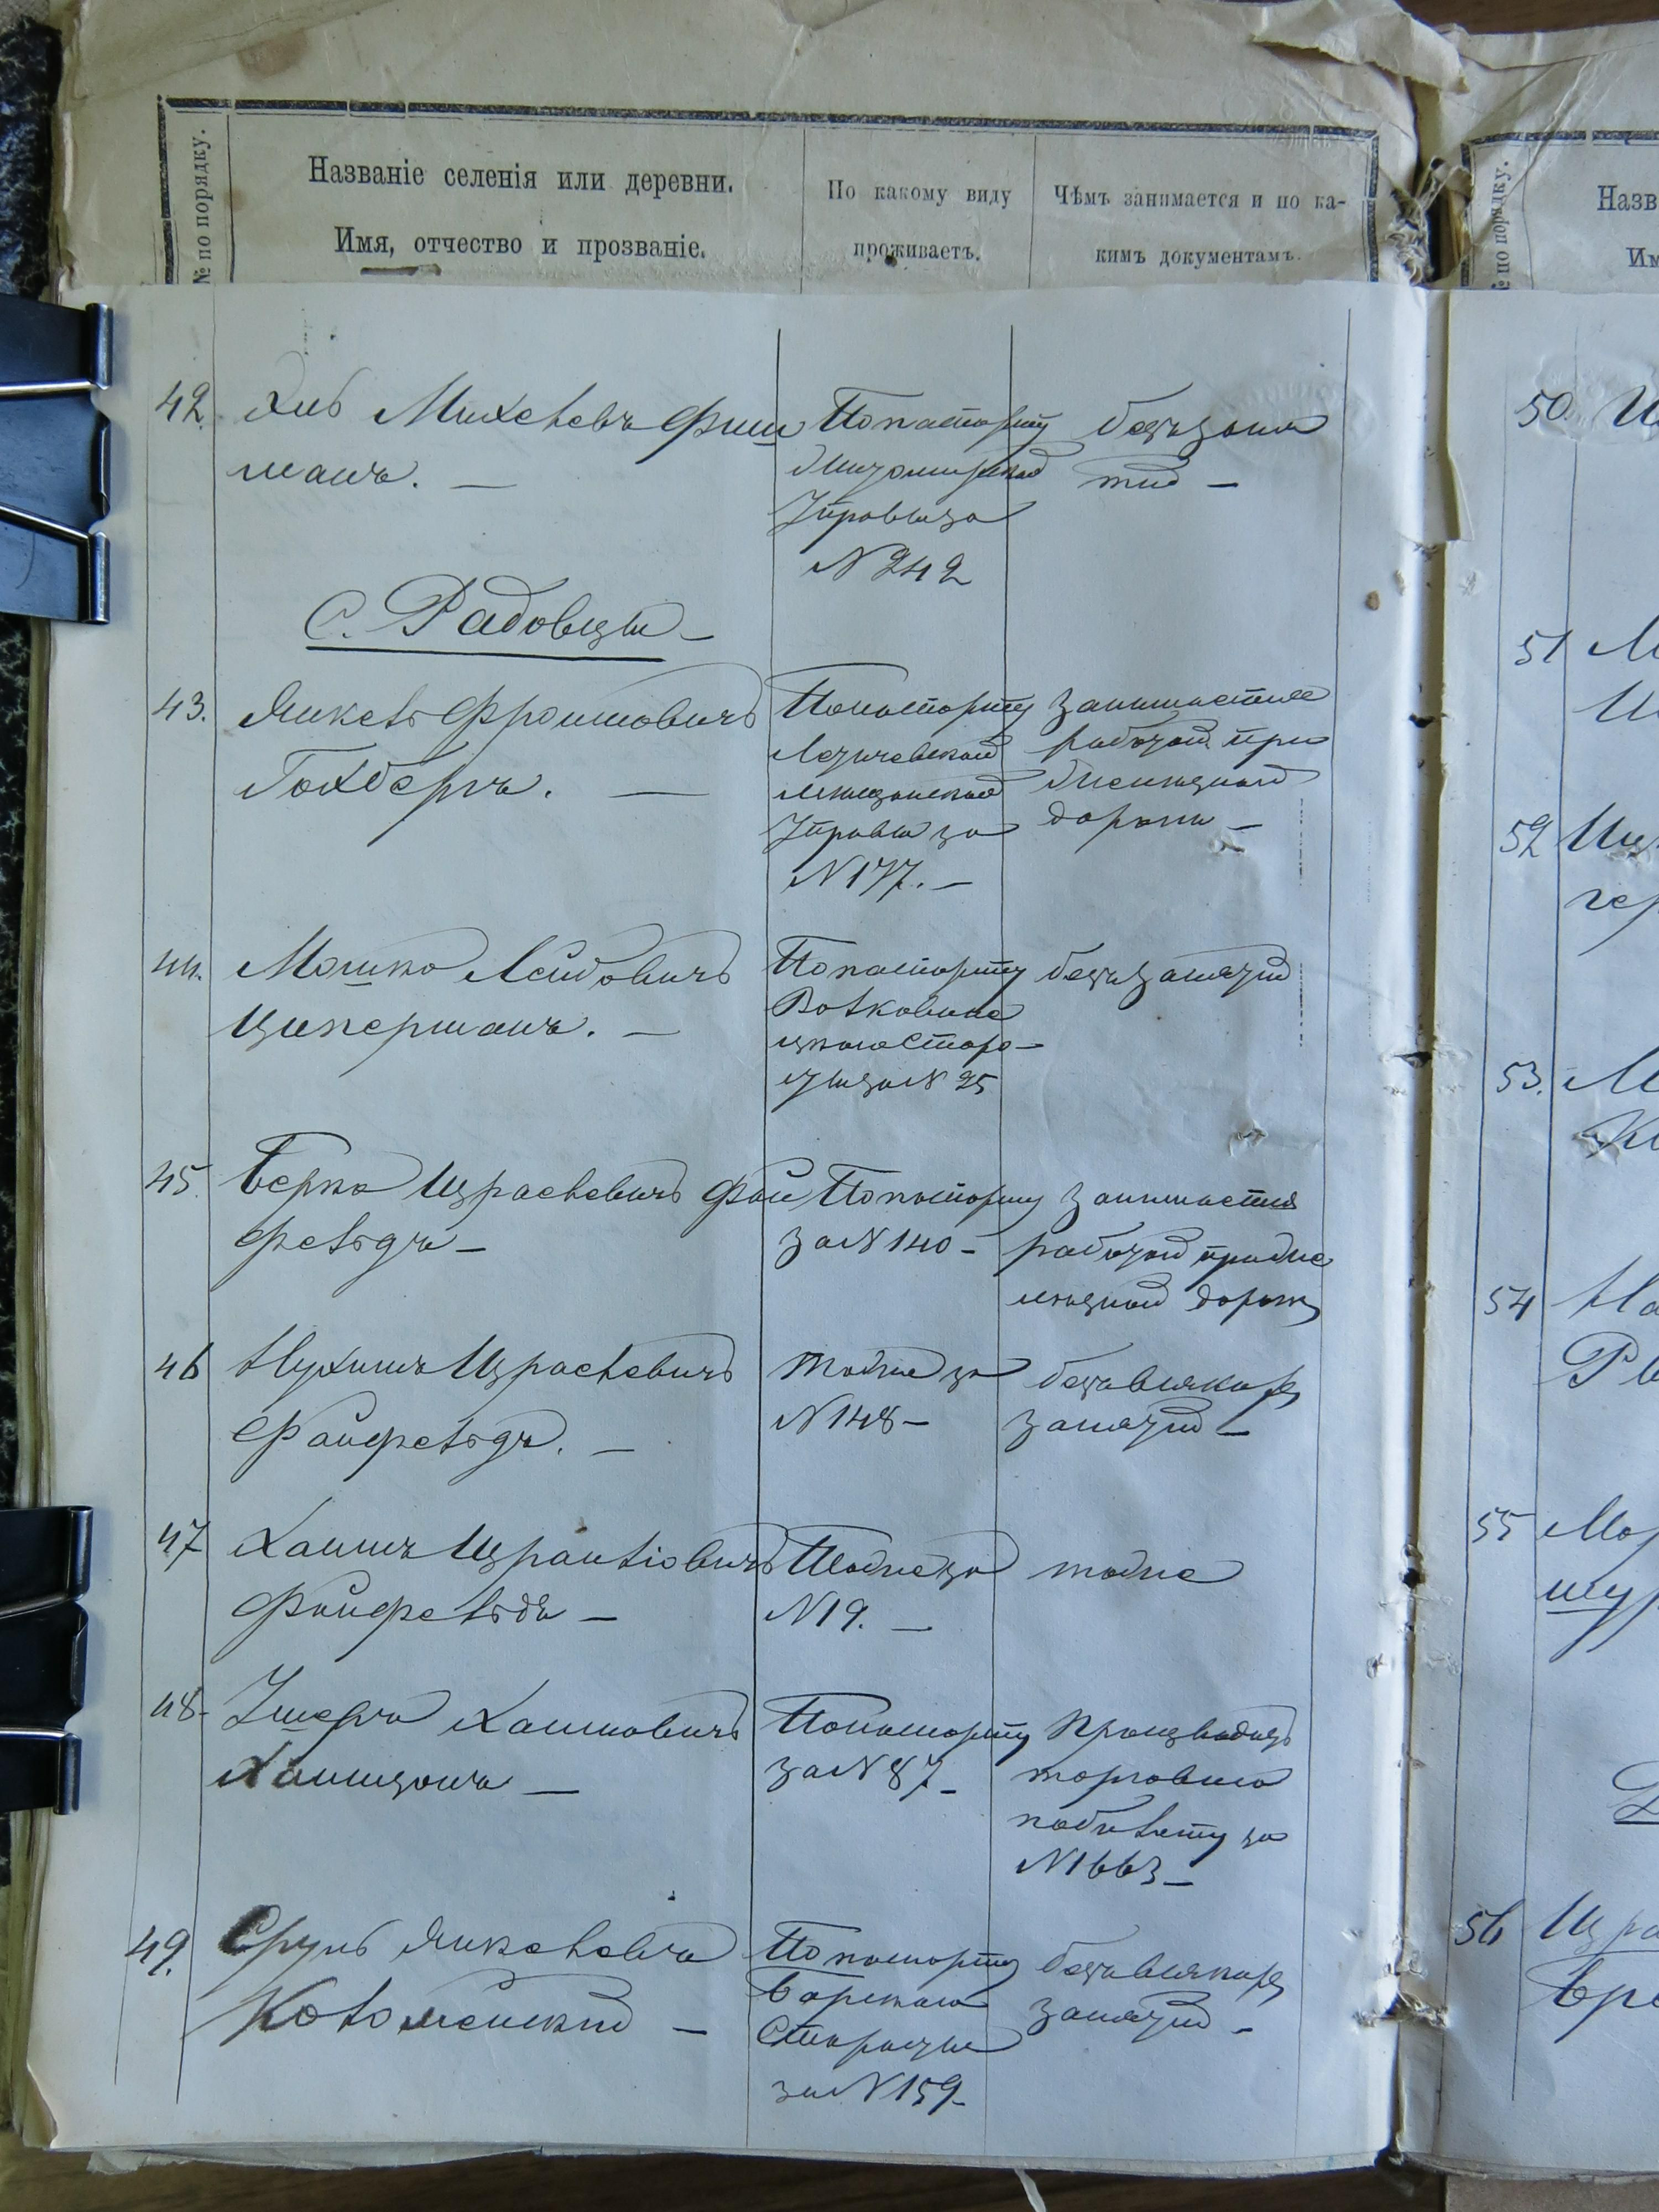 № по порядку.
Названіе селенія или деревни.
Имя, отчество и прозваніе.
По какому виду
проживаетъ.
Чѣмъ занимается и по ка-
кимъ документамъ.
42. Михелевъ Фиш
манъ. —
По паспорту
Управы за
N 242
безъ заня
тій —
С. Радовцы —
43. Янкель Фроимовичъ
Гохбергъ. —
По паспорту
Летичевской
мѣщанской
Управы за
N 177. —
занимается
работой при
желѣзной
дороги —
44. Мошко Лейбовичъ
Цикерманъ. —
По паспорту
Волковинс
цкаго Старо-
сты за N 25
безъ занятій
45. Берко Израелевичъ Фай
фельдъ —
По паспорту
за N 140 —
занимается
работой при же
лѣзной дорогѣ
46 Нухимъ Израелевичъ
Файфельдъ. —
тоже за
N 148 —
безъ всякихъ
занятій —
47 Хаимъ Израилiовичъ
Файфельдъ —
Тоже за
N 19. —
тоже
48. Ушеръ Хаимовичъ
Хаимзонъ —
По паспорту
за N 87 —
Производитъ
торговлю
по билету за
N 1663 —
49. Сруль Янкелевъ
Коломейскій —
По паспорту
Барскаго
Старосты
за N 159 —
безъ всякихъ
занятій —
№ по порядку.
Назв
Им
50.
51
52
гер
53.
54
55
шур
56 Изра